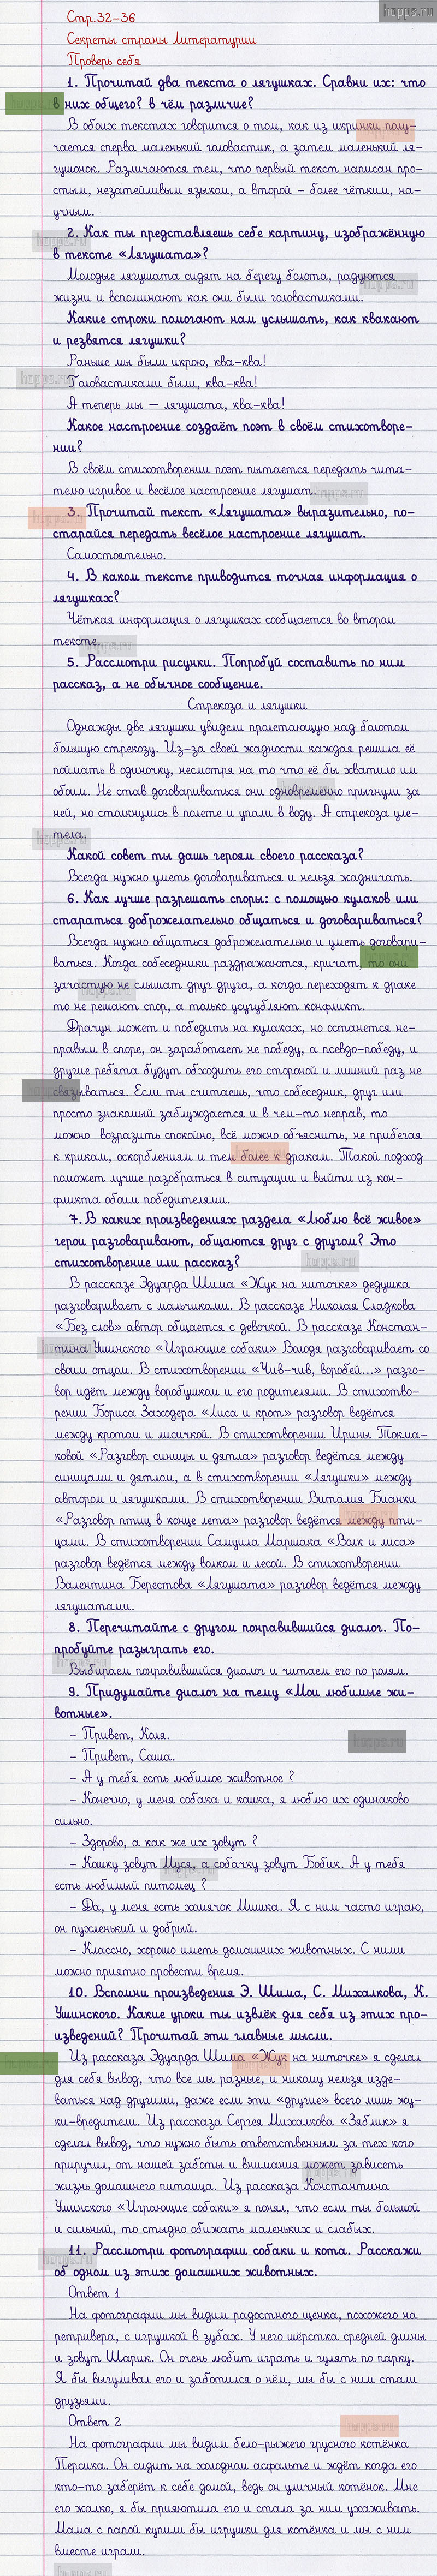 hopps.ru
Стр.32-36
Секреты страны Литературии
Проверь себя
1. Прочитай два текста о лягушках. Сравни их: что
в них общего? в чём различие?
В обоих текстах говорится о том, как из икринки полу-
чается сперва маленький головастик, а затем маленький ля-
гушонок. Различаются тем, что первый текст написан про-
стым, незатейливым языком, а второй – более чётким, на-
учным.
2. Как ты представляешь себе картину, изображённую
в тексте «Лягушата»?
Молодые лягушата сидят на берегу болота, радуются
жизни и вспоминают как они были головастиками.
Какие строки помогают нам услышать, как квакают
и резвятся лягушки?
Раньше мы были икрою, ква-ква!
Головастиками были, ква-ква!
А теперь мы – лягушата, ква-ква!
Какое настроение создаёт поэт в своём стихотворе-
нии?
В своём стихотворении поэт пытается передать чита-
телю игривое и весёлое настроение лягушат.
3. Прочитай текст «Лягушата» выразительно, по-
старайся передать весёлое настроение лягушат.
Самостоятельно.
4. В каком тексте приводится точная информация о
лягушках?
Чёткая информация о лягушках сообщается во втором
тексте.
5. Рассмотри рисунки. Попробуй составить по ним
рассказ, а не обычное сообщение.
Стрекоза и лягушки
Однажды две лягушки увидели пролетающую над болотом
большую стрекозу. Из-за своей жадности каждая решила её
поймать в одиночку, несмотря на то что её бы хватило им
обоим. Не став договариваться они одновременно прыгнули за
ней, но столкнулись в полете и упали в воду. А стрекоза уле-
тела.
Какой совет ты дашь героям своего рассказа?
Всегда нужно уметь договариваться и нельзя жадничать.
6. Как лучше разрешать споры: с помощью кулаков или
стараться доброжелательно общаться и договариваться?
Всегда нужно общаться доброжелательно и уметь договари-
ваться. Когда собеседники раздражаются, кричат, то они
зачастую не слышат друг друга, а когда переходят к драке
то не решают спор, а только усугубляют конфликт.
Драчун может и победить на кулаках, но останется не-
правым в споре, он заработает не победу, а псевдо-победу, и
другие ребята будут обходить его стороной и лишний раз не
связываться. Если ты считаешь, что собеседник, друг или
просто знакомый заблуждается и в чем-то неправ, то
можно возразить спокойно, всё можно объяснить, не прибегая
к крикам, оскорблениям и тем более к дракам. Такой подход
поможет лучше разобраться в ситуации и выйти из кон-
фликта обоим победителями.
7. В каких произведениях раздела «Люблю всё живое»
герои разговаривают, общаются друг с другом? Это
стихотворение или рассказ?
В рассказе Эдуарда Шима «Жук на ниточке» дедушка
разговаривает с мальчиками. В рассказе Николая Сладкова
«Без слов» автор общается с девочкой. В рассказе Констан-
тина Ушинского «Играющие собаки» Володя разговаривает со
своим отцом. В стихотворении «Чив-чив, воробей...» разго-
вор идёт между воробушком и его родителями. В стихотво-
рении Бориса Заходера «Лиса и крот» разговор ведётся
между кротом и лисичкой. В стихотворении Ирины Токма-
ковой «Разговор синицы и дятла» разговор ведётся между
синицами и дятлом, а в стихотворении «Лягушки» между
автором и лягушками. В стихотворении Виталия Бианки
«Разговор птиц в конце лета» разговор ведётся между пти-
цами. В стихотворении Самуила Маршака «Волк и лиса»
разговор ведётся между волком и лесой. В стихотворении
Валентина Берестова «Лягушата» разговор ведётся между
лягушатами.
8. Перечитайте с другом понравившийся диалог. По-
пробуйте разыграть его.
Выбираем понравившийся диалог и читаем его по ролям.
9. Придумайте диалог на тему «Мои любимые жи-
вотные».
– Привет, Коля.
– Привет, Саша.
– А у тебя есть любимое животное ?
– Конечно, у меня собака и кошка, я люблю их одинаково
сильно.
– Здорово, а как же их зовут ?
– Кошку зовут Муся, а собачку зовут Бобик. А у тебя
есть любимый питомец ?
– Да, у меня есть хомячок Мишка. Я с ним часто играю,
он пухленький и добрый.
– Классно, хорошо иметь домашних животных. С ними
можно приятно провести время.
10. Вспомни произведения Э. Шима, С. Михалкова, К.
Ушинского. Какие уроки ты извлёк для себя из этих про-
изведений? Прочитай эти главные мысли.
Из рассказа Эдуарда Шима «Жук на ниточке» я сделал
для себя вывод, что все мы разные, и никому нельзя изде-
ваться над другими, даже если эти «другие» всего лишь жу-
ки-вредители. Из рассказа Сергея Михалкова «Зяблик» я
сделал вывод, что нужно быть ответственным за тех кого
приручил, от нашей заботы и внимания может зависеть
жизнь домашнего питомца. Из рассказа Константина
Ушинского «Играющие собаки» я понял, что если ты большой
и сильный, то стыдно обижать маленьких и слабых.
11. Рассмотри фотографии собаки и кота. Расскажи
об одном из этих домашних животных.
Ответ 1
На фотографии мы видим радостного щенка, похожего на
ретривера, с игрушкой в зубах. У него шёрстка средней длины
и зовут Шарик. Он очень любит играть и гулять по парку.
Я бы выгуливал его и заботился о нём, мы бы с ним стали
друзьями.
Ответ 2
На фотографии мы видим бело-рыжего грустного котёнка
Персика. Он сидит на холодном асфальте и ждёт когда его
кто-то заберёт к себе домой, ведь он уличный котёнок. Мне
его жалко, я бы приютила его и стала за ним ухаживать.
Мама с папой купили бы игрушки для котёнка и мы с ним
вместе играли.